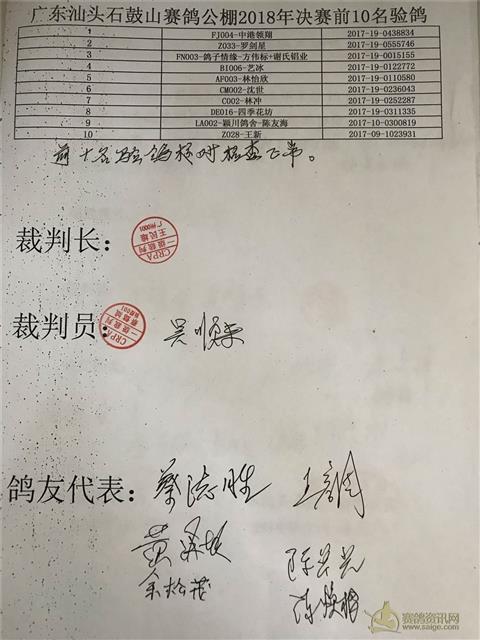 广东汕头石鼓山赛鸽公棚2018年决赛前10名验鸽
1 FJ004-中港领翔 2017-19-0438834
2 Z033-罗剑星 2017-19-0555746
3 FN003-鸽子情缘-方伟标+谢氏铝业 2017-19-0015155
4 BI006-艺冰 2017-19-0122772
5 AF003-林怡欣 2017-19-0110580
6 CM002-沈世 2017-19-0236043
7 C002-林冲 2017-19-0252287
8 DE016-四季花坊 2017-19-0311335
9 LA002-颍川鸽舍-陈友海 2017-10-0300819
10 Z028-王新 2017-09-1023931
前十名验鸽核对检查正常。
裁判长：
CRPA 一级裁判
裁判员：
CRPA 一级裁判
鸽友代表：
赛鸽资讯网
www.saige.com